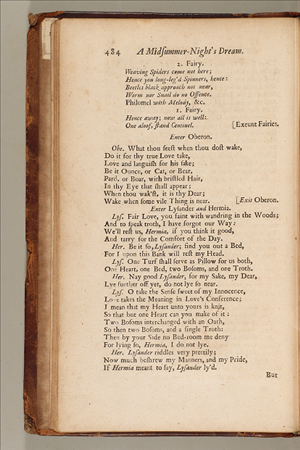 484 A Midsummer-Night's Dream.
2. Fairy.
Weaving Spiders come not here;
Hence you long-leg'd Spinners, hence:
Beetles black approach not near,
Worm nor Snail do no Offence.
Philomel with Melody, &c.
1. Fairy.
Hence away; now all is well:
One aloof, stand Centinel. [Exeunt Fairies.
Enter Oberon.
Obe. What thou seest when thou dost wake,
Do it for thy true Love take,
Love and languish for his sake;
Be it Ounce, or Cat, or Bear,
Pard, or Boar, with bristled Hair,
In thy Eye that shall appear:
When thou wak'st, it is thy Dear;
Wake when some vile Thing is near. [Exit Oberon.
Enter Lysander and Hermia.
Lys. Fair Love, you faint with wandring in the Woods;
And to speak troth, I have forgot our Way:
We'll rest us, Hermia, if you think it good,
And tarry for the Comfort of the Day.
Her. Be it so, Lysander; find you out a Bed,
For I upon this Bank will rest my Head.
Lys. One Turf shall serve as Pillow for us both,
One Heart, one Bed, two Bosoms, and one Troth.
Her. Nay good Lysander, for my Sake, my Dear,
Lye further off yet, do not lye so near.
Lys. O take the Sense sweet of my Innocence,
Love takes the Meaning in Love's Conference;
I mean that my Heart unto yours is knit,
So that but one Heart can you make of it:
Two Bosoms interchanged with an Oath,
So then two Bosoms, and a single Troth:
Then by your Side no Bed-room me deny
For lying so, Hermia, I do not lye.
Her. Lysander riddles very prettily;
Now much beshrew my Manners, and my Pride,
If Hermia meant to say, Lysander ly'd.
But